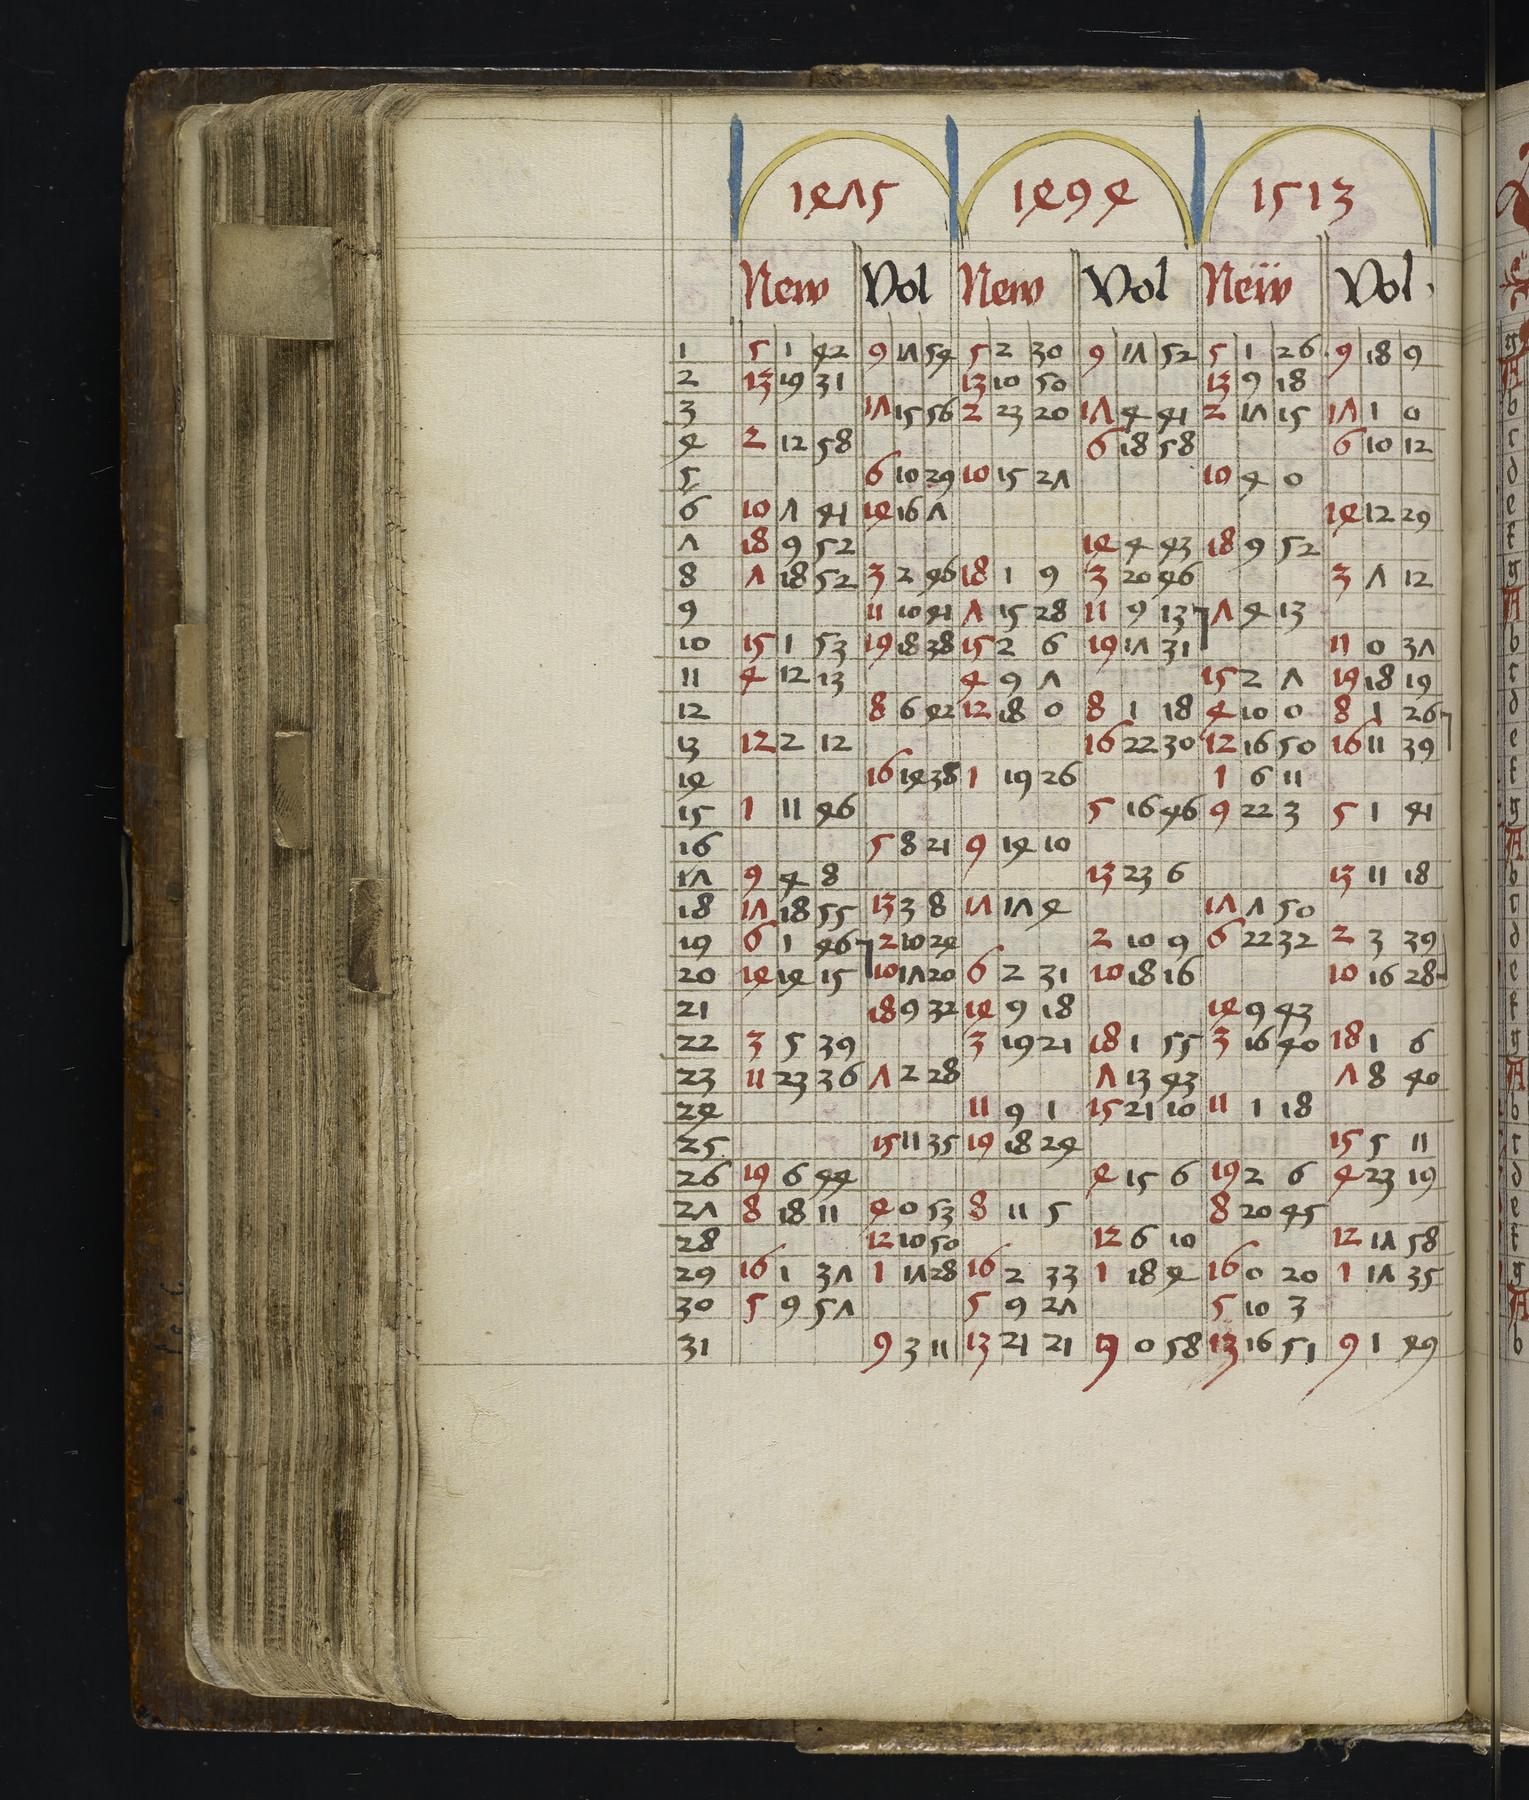 1475 1494 1513
New Vol New Vol New Vol
1 5 1 42 9 17 54 5 2 30 9 17 52 5 1 26 9 18 9
2 13 19 31 13 10 50 13 9 18
3 17 15 56 2 23 20 17 4 41 2 17 15 17 1 0
4 2 12 58 6 18 58 6 10 12
5 6 10 29 10 15 27 10 4 0
6 10 7 41 14 16 7 14 12 29
7 18 9 52 14 4 43 18 9 52
8 7 18 52 3 2 46 18 1 9 3 20 46 3 7 12
9 11 10 41 7 15 28 11 9 13 7 4 13
10 15 1 53 19 18 38 15 2 6 19 17 31 11 0 37
11 4 12 13 4 9 7 15 2 7 19 18 19
12 8 6 42 12 18 0 8 1 18 4 10 0 8 1 26
13 12 2 12 16 22 30 12 16 50 16 11 39
14 16 14 38 1 19 26 1 6 11
15 1 11 46 5 16 46 9 22 3 5 1 41
16 5 8 21 9 14 10
17 9 4 8 13 23 6 13 11 18
18 17 18 55 13 3 8 17 17 4 17 7 50
19 6 1 46 2 10 24 2 10 9 6 22 32 2 3 39
20 14 14 15 10 17 20 6 2 31 10 18 16 10 16 28
21 18 9 32 14 9 18 14 9 43
22 3 5 39 3 19 21 18 1 55 3 16 40 18 1 6
23 11 23 36 7 2 28 7 13 43 7 8 40
24 11 9 1 15 21 10 11 1 18
25 15 11 35 19 18 24 15 5 11
26 19 6 44 4 15 6 19 2 6 4 23 19
27 8 18 11 4 0 53 8 11 5 8 20 45
28 12 10 50 12 6 10 12 17 58
29 16 1 37 1 17 28 16 2 33 1 18 4 16 0 20 1 17 35
30 5 9 57 5 9 27 5 10 3
31 9 3 11 13 21 21 9 0 58 13 16 51 9 1 49